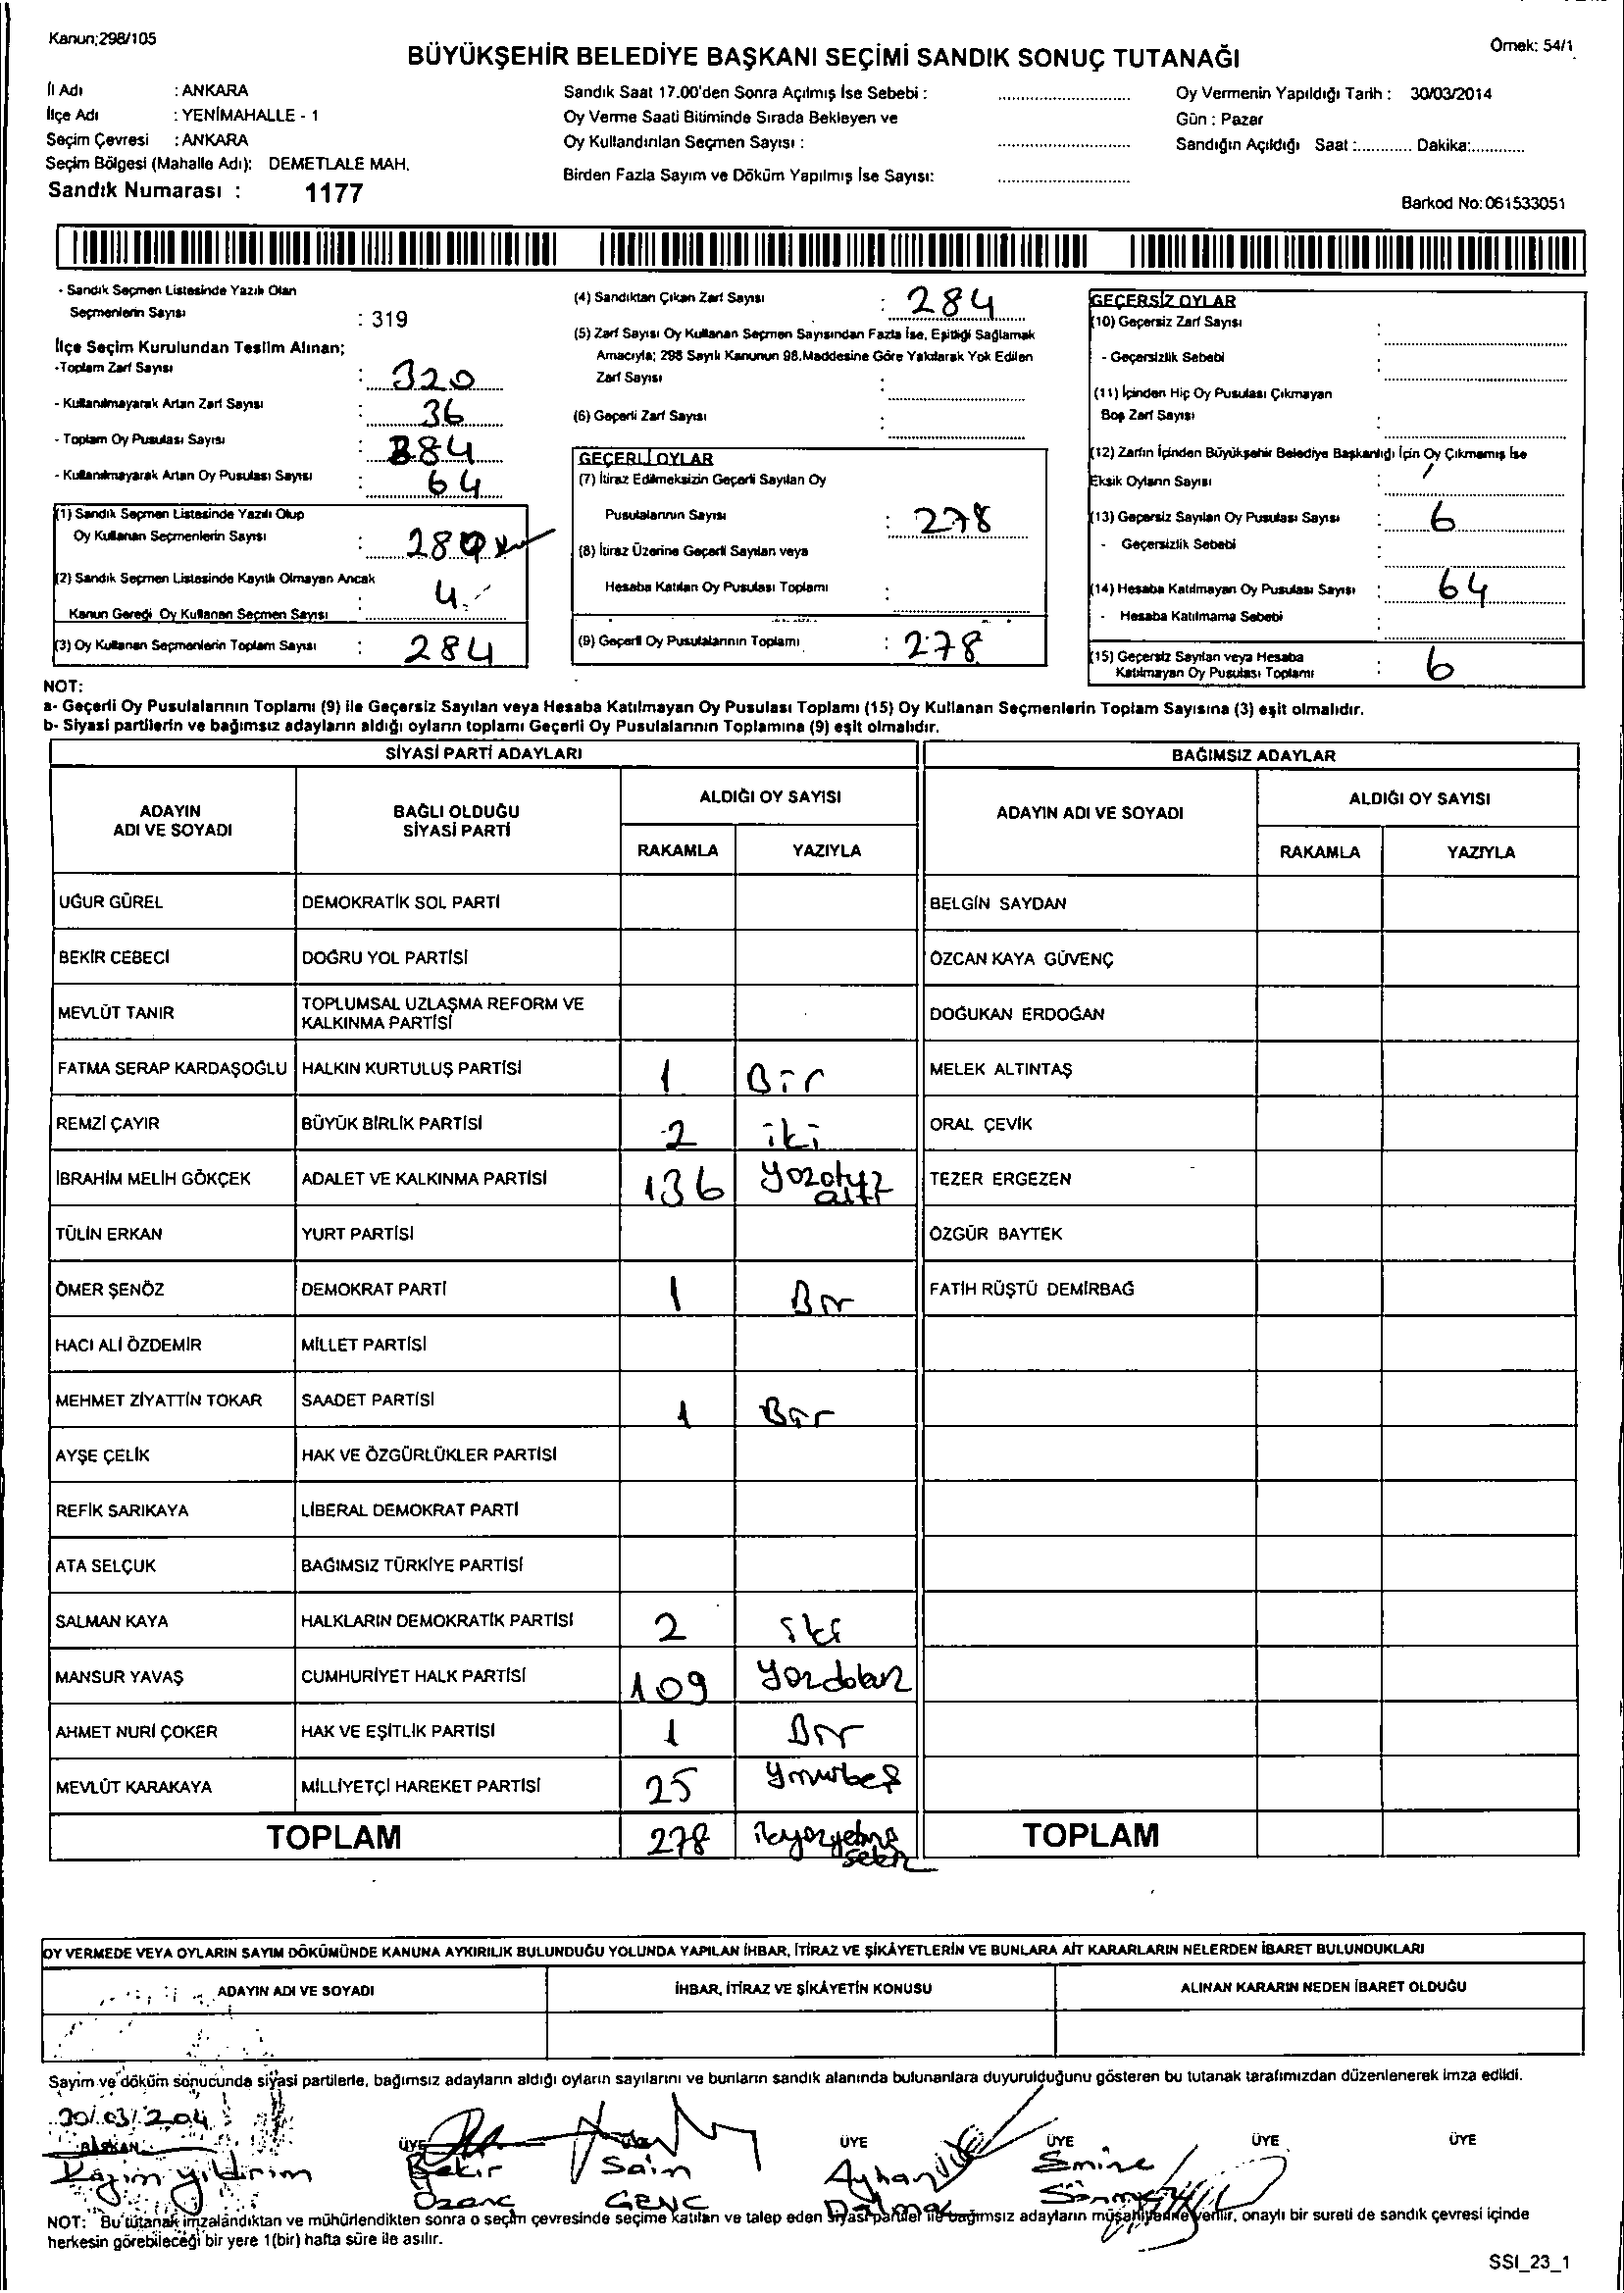 Kanun;298/105
Örnek: 54/1
BÜYÜKŞEHİR BELEDİYE BAŞKANI SEÇİMİ SANDIK SONUÇ TUTANAĞI
İl Adı : ANKARA
İlçe Adı : YENİMAHALLE - 1
Seçim Çevresi : ANKARA
Seçim Bölgesi (Mahalle Adı): DEMETLALE MAH.
Sandık Numarası : 1177
Sandık Saat 17.00'den Sonra Açılmış İse Sebebi :
Oy Verme Saati Bitiminde Sırada Bekleyen ve
Oy Kullandırılan Seçmen Sayısı :
Birden Fazla Sayım ve Döküm Yapılmış İse Sayısı:
Oy Vermenin Yapıldığı Tarih : 30/03/2014
Gün : Pazar
Sandığın Açıldığı Saat :............ Dakika:............
Barkod No:061533051
- Sandık Seçmen Listesinde Yazılı Olan
Seçmenlerin Sayısı : 319
İlçe Seçim Kurulundan Teslim Alınan;
-Toplam Zarf Sayısı : 320
- Kullanılmayarak Artan Zarf Sayısı : 36
- Toplam Oy Pusulası Sayısı : 384
- Kullanılmayarak Artan Oy Pusulası Sayısı : 64
(1) Sandık Seçmen Listesinde Yazılı Olup
Oy Kullanan Seçmenlerin Sayısı : 280
(2) Sandık Seçmen Listesinde Kayıtlı Olmayan Ancak
Kanun Gereği Oy Kullanan Seçmen Sayısı : 4
(3) Oy Kullanan Seçmenlerin Toplam Sayısı : 284
(4) Sandıktan Çıkan Zarf Sayısı : 284
(5) Zarf Sayısı Oy Kullanan Seçmen Sayısından Fazla İse, Eşitliği Sağlamak
Amacıyla; 298 Sayılı Kanunun 98.Maddesine Göre Yakılarak Yok Edilen
Zarf Sayısı :
(6) Geçerli Zarf Sayısı :
GEÇERLİ OYLAR
(7) İtiraz Edilmeksizin Geçerli Sayılan Oy
Pusulalarının Sayısı : 278
(8) İtiraz Üzerine Geçerli Sayılan veya
Hesaba Katılan Oy Pusulası Toplamı :
(9) Geçerli Oy Pusulalarının Toplamı : 278
GEÇERSİZ OYLAR
(10) Geçersiz Zarf Sayısı :
- Geçersizlik Sebebi :
(11) İçinden Hiç Oy Pusulası Çıkmayan
Boş Zarf Sayısı :
(12) Zarfın İçinden Büyükşehir Belediye Başkanlığı İçin Oy Çıkmamış İse
Eksik Oyların Sayısı :
(13) Geçersiz Sayılan Oy Pusulası Sayısı : 6
- Geçersizlik Sebebi :
(14) Hesaba Katılmayan Oy Pusulası Sayısı : 64
- Hesaba Katılmama Sebebi :
(15) Geçersiz Sayılan veya Hesaba
Katılmayan Oy Pusulası Toplamı : 6
NOT:
a- Geçerli Oy Pusulalarının Toplamı (9) ile Geçersiz Sayılan veya Hesaba Katılmayan Oy Pusulası Toplamı (15) Oy Kullanan Seçmenlerin Toplam Sayısına (3) eşit olmalıdır.
b- Siyasi partilerin ve bağımsız adayların aldığı oyların toplamı Geçerli Oy Pusulalarının Toplamına (9) eşit olmalıdır.
SİYASİ PARTİ ADAYLARI
BAĞIMSIZ ADAYLAR
ADAYIN ADI VE SOYADI
BAĞLI OLDUĞU SİYASİ PARTİ
ALDIĞI OY SAYISI
RAKAMLA YAZIYLA
ADAYIN ADI VE SOYADI
ALDIĞI OY SAYISI
RAKAMLA YAZIYLA
UĞUR GÜREL DEMOKRATİK SOL PARTİ BELGİN SAYDAN
BEKİR CEBECİ DOĞRU YOL PARTİSİ ÖZCAN KAYA GÜVENÇ
MEVLÜT TANIR TOPLUMSAL UZLAŞMA REFORM VE KALKINMA PARTİSİ DOĞUKAN ERDOĞAN
FATMA SERAP KARDAŞOĞLU HALKIN KURTULUŞ PARTİSİ 1 Bir MELEK ALTINTAŞ
REMZİ ÇAYIR BÜYÜK BİRLİK PARTİSİ 2 iki ORAL ÇEVİK
İBRAHİM MELİH GÖKÇEK ADALET VE KALKINMA PARTİSİ 136 yüzotuz altı TEZER ERGEZEN
TÜLİN ERKAN YURT PARTİSİ ÖZGÜR BAYTEK
ÖMER ŞENÖZ DEMOKRAT PARTİ 1 Bir FATİH RÜŞTÜ DEMİRBAĞ
HACI ALİ ÖZDEMİR MİLLET PARTİSİ
MEHMET ZİYATTİN TOKAR SAADET PARTİSİ 1 Bir
AYŞE ÇELİK HAK VE ÖZGÜRLÜKLER PARTİSİ
REFİK SARIKAYA LİBERAL DEMOKRAT PARTİ
ATA SELÇUK BAĞIMSIZ TÜRKİYE PARTİSİ
SALMAN KAYA HALKLARIN DEMOKRATİK PARTİSİ 2 iki
MANSUR YAVAŞ CUMHURİYET HALK PARTİSİ 109 yüzdokuz
AHMET NURİ ÇOKER HAK VE EŞİTLİK PARTİSİ 1 Bir
MEVLÜT KARAKAYA MİLLİYETÇİ HAREKET PARTİSİ 25 yirmibeş
TOPLAM 278 ikiyüzyetmiş sekiz TOPLAM
OY VERMEDE VEYA OYLARIN SAYIM DÖKÜMÜNDE KANUNA AYKIRILIK BULUNDUĞU YOLUNDA YAPILAN İHBAR, İTİRAZ VE ŞİKÂYETLERİN VE BUNLARA AİT KARARLARIN NELERDEN İBARET BULUNDUKLARI
ADAYIN ADI VE SOYADI İHBAR, İTİRAZ VE ŞİKÂYETİN KONUSU ALINAN KARARIN NEDEN İBARET OLDUĞU
Sayım ve döküm sonucunda siyasi partilerle, bağımsız adayların aldığı oyların sayılarını ve bunların sandık alanında bulunanlara duyurulduğunu gösteren bu tutanak tarafımızdan düzenlenerek imza edildi.
30/03/2014
BAŞKAN ÜYE ÜYE ÜYE ÜYE ÜYE
Kazım Yıldırım Bekir Saim Ayhan Emine
Özanç GENÇ Dalmak
NOT: Bu tutanak imzalandıktan ve mühürlendikten sonra o seçim çevresinde seçime katılan ve talep eden siyasi partiler ile bağımsız adayların müşahitlerine verilir, onaylı bir sureti de sandık çevresi içinde
herkesin görebileceği bir yere 1(bir) hafta süre ile asılır.
SSI_23_1